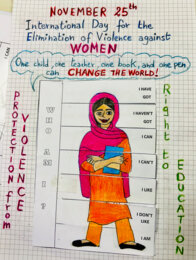 NOVEMBER 25th
International Day for the
Elimination of Violence against
WOMEN
One child, one teacher, one book, and one pen
can CHANGE THE WORLD!
PROTECTION from
VIOLENCE
WHO AM I?
I HAVE
GOT
I HAVEN'T
GOT
I CAN
I CAN'T
I LIKE
I DON'T
LIKE
I AM
Right to
EDUCATION